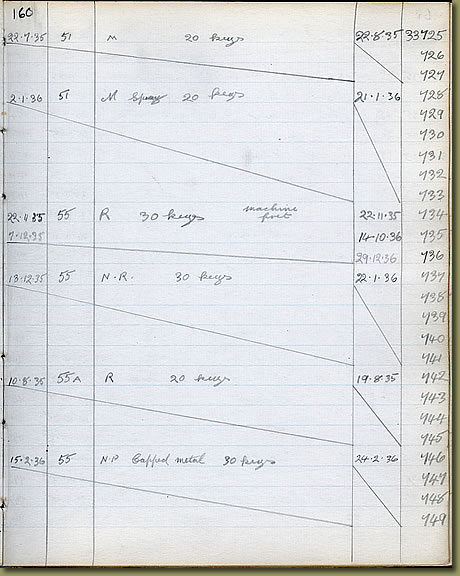 160
22·7·35 51 M 20 keys 22·8·35 33725
726
727
2·1·36 51 M Spray 20 keys 21·1·36 728
729
730
731
732
733
22·11·35 55 R 30 keys machine 22·11·35 734
7·12·35 14·10·36 735
29·12·36 736
13·12·35 55 N·R· 30 keys 22·1·36 737
738
739
740
741
10·8·35 55A R 20 keys 19·8·35 742
743
744
745
15·2·36 55 NP Capped metal 30 keys 24·2·36 746
747
748
749